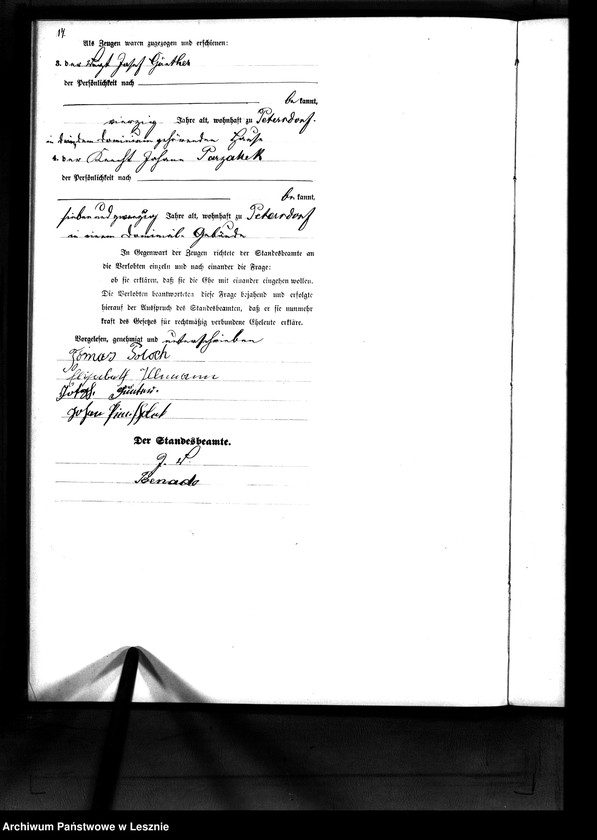 14.
Als Zeugen waren zugezogen und erschienen:
3. der Vogt Josef Günther
der Persönlichkeit nach
be kannt,
vierzig Jahre alt, wohnhaft zu Petersdorf
in dem Dominium gehörenden Hause
4. der Knecht Johann
der Persönlichkeit nach
be kannt,
sieben und zwanzig Jahre alt, wohnhaft zu Petersdorf
in einem Dominial-Gebäude
In Gegenwart der Zeugen richtete der Standesbeamte an
die Verlobten einzeln und nach einander die Frage:
ob sie erklären, daß sie die Ehe mit einander eingehen wollen.
Die Verlobten beantworteten diese Frage bejahend und erfolgte
hierauf der Ausspruch des Standesbeamten, daß er sie nunmehr
kraft des Gesetzes für rechtmäßig verbundene Eheleute erkläre.
Vorgelesen, genehmigt und unterschrieben
Tomas Poloch
Ulmann
Günter.
Johan
Der Standesbeamte.
Benade
Archiwum Państwowe w Lesznie